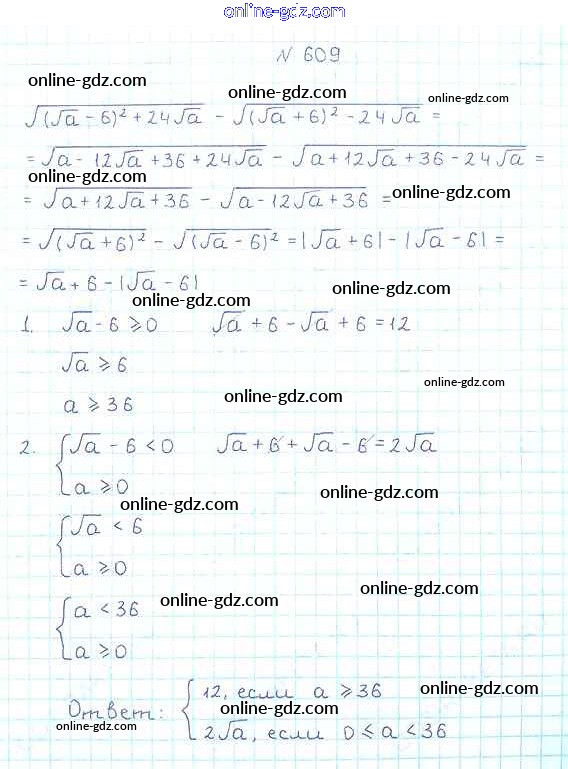 online-gdz.com
N 609
online-gdz.com online-gdz.com online-gdz.com
√((√a - 6)² + 24√a) - √((√a + 6)² - 24√a) =
= √(a - 12√a + 36 + 24√a) - √(a + 12√a + 36 - 24√a) =
online-gdz.com online-gdz.com
= √(a + 12√a + 36) - √(a - 12√a + 36) =
= √((√a + 6)²) - √((√a - 6)²) = |√a + 6| - |√a - 6| =
= √a + 6 - |√a - 6|
online-gdz.com online-gdz.com
1. √a - 6 ⩾ 0 √a + 6 - √a + 6 = 12
√a ⩾ 6
online-gdz.com online-gdz.com
a ⩾ 36
2. { √a - 6 < 0 √a + 6 + √a - 6 = 2√a
a ⩾ 0
online-gdz.com online-gdz.com
{ √a < 6
a ⩾ 0
online-gdz.com online-gdz.com
{ a < 36
a ⩾ 0
Ответ: { 12, если a ⩾ 36
online-gdz.com online-gdz.com online-gdz.com
2√a, если 0 ⩽ a < 36